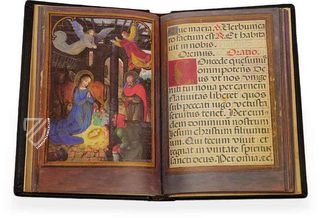 Ave maria. Verbum caro
factum est. Et habita
vit in nobis.
Oremus. Oratio.
Concede quesumus
omnipotens De
us ut nos unige
niti tui nova per carnem
nativitas liberet quos
sub peccati iugo vetustas
servitus tenet. Per eun
dem dominum nostrum
Jesum christum filium tu
um. Qui tecum vivit et
regnat in unitate spiritus
sancti deus. Per omnia